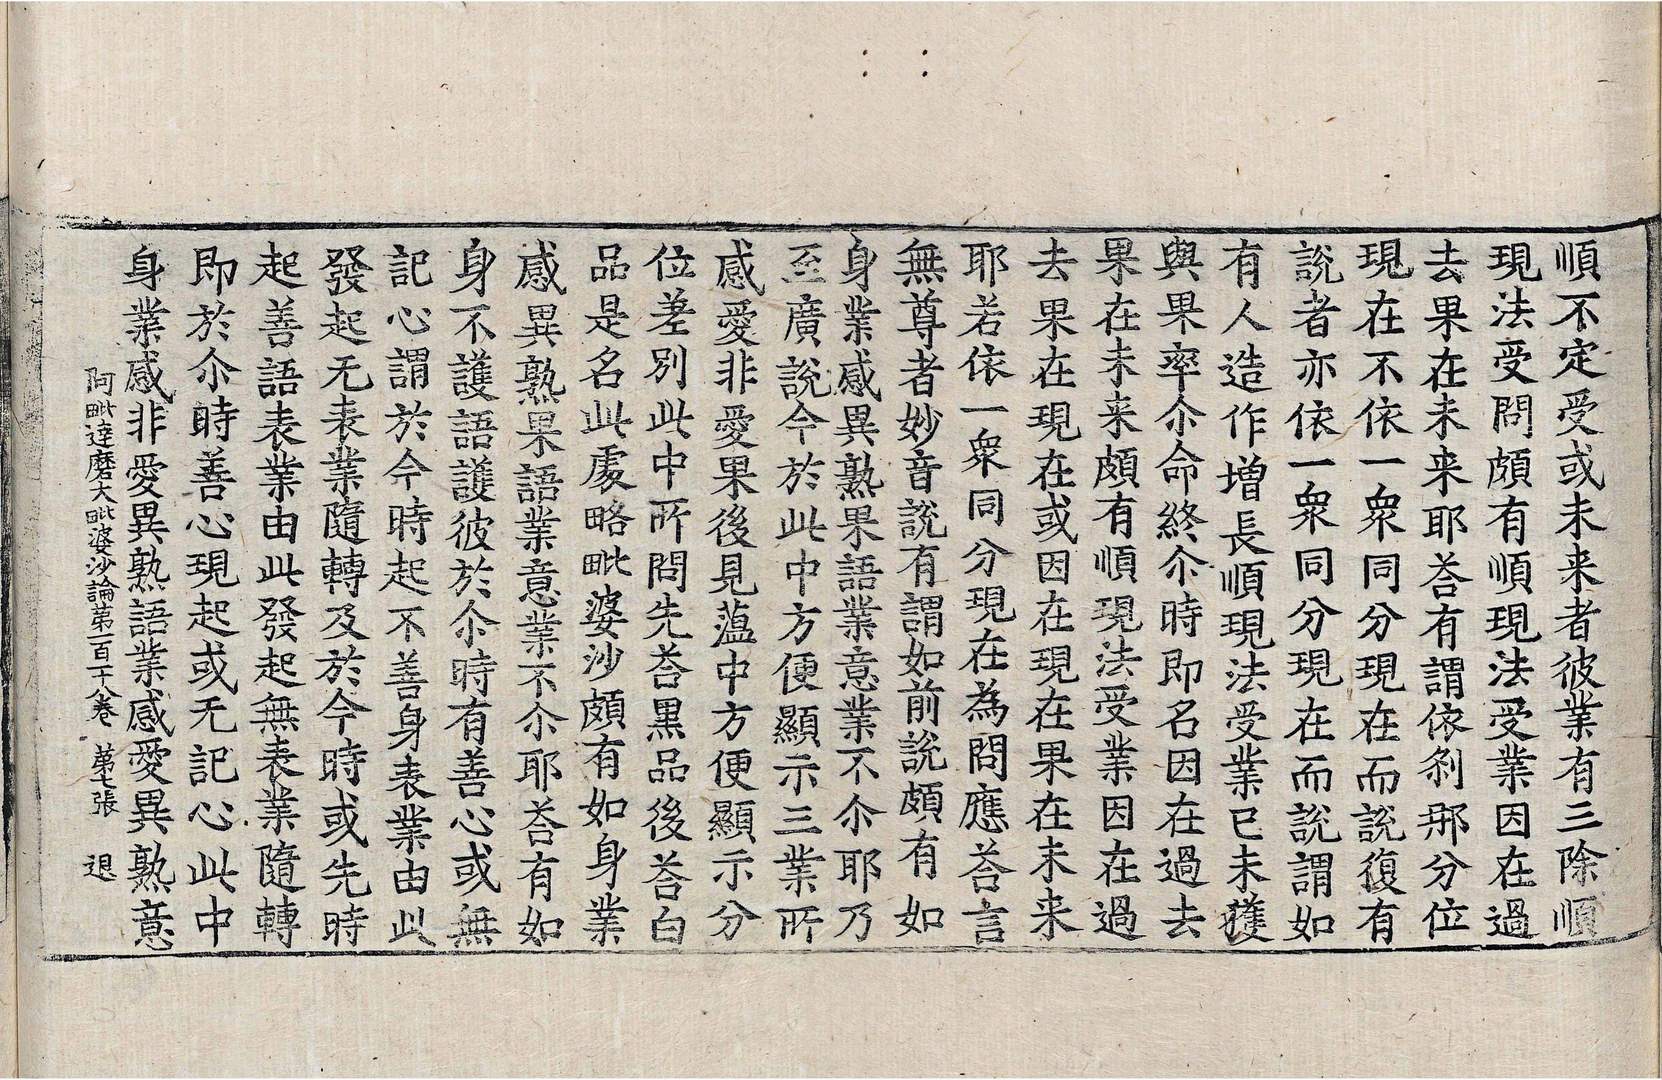 順不定受或未来者彼業有三除順
現法受問頗有順現法受業因在過
去果在未来耶荅有謂依剎那分位
現在不依一衆同分現在而說復有
說者亦依一衆同分現在而說謂如
有人造作增長順現法受業已未獲
與果率尒命終尒時即名因在過去
果在未来頗有順現法受業因在過
去果在現在或因在現在果在未来
耶若依一衆同分現在為問應荅言
無尊者妙音說有謂如前說頗有如
身業感異熟果語業意業不尒耶乃
至廣說今於此中方便顯示三業所
感愛非愛果後見蘊中方便顯示分
位差別此中所問先荅黒品後荅白
品是名此處略毗婆沙頗有如身業
感異熟果語業意業不尒耶荅有如
身不護語護彼於尒時有善心或無
記心謂於今時起不善身表業由此
發起无表業隨轉及於今時或先時
起善語表業由此發起無表業隨轉
即於尒時善心現起或无記心此中
身業感非愛異熟語業感愛異熟意
阿毗達磨大毗婆沙論第一百十八卷 第七張 退